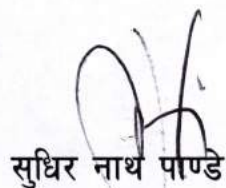 सुधिर नाथ पाण्डे